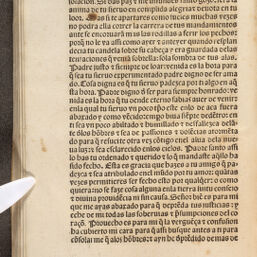 solacion. Si das paz y me infundes santo gozo: sera la
anima de tu sieruo en complida alegria deuota en tu
loor. Mas si te apartares como sueles muchas vezes
no podra ella correr la carrera de tus mandamientos
ante se encoruará mas las rodillas a ferir los pechos
porq̃ no le va assi como ayer y anteyer quando resplan
decia tu candela sobre su cabeça y era guardada de las
tentaciones q̃ venia so la sola sombra de tus alas.
Padre justo y siempre de loar venida es la hora para
q̃ sea tu sieruo experimentado padre digno de ser ama
do. Cosa digna es q̃ tu sieruo padezca por ti algo en aq̃
sta hora. Padre digno d̃ ser para siempre honrado: ve
nida es la hora q̃ tu dende eterno sabias auer de venir
en la qual tu sieruo vn poco tp̃o este enlo de aca fuera
abatido y como vécido: mas biua siépre détro cerca
ti sea vn poco abatido y humillado y desfallezca delã
te ôlos hôbres y sea de passiones y dolécias atormêta
do para q̃ resucite otra vez côtigo enel alua dela nueua
luz: y sea esclarecido enlos cielos. Padre santo assi
lo has tu ordenado y querido y lo q̃ mandaste aq̃llo ha
sido fecho. Esta es gracia que hazes a tu amigo q̃ pa
dezca y sea atribulado enel mûdo por tu amor: quãtas
vezes permitieres ser fecho esto por qualq̃er: o como
quiera: no se faze cosa alguna enla tierra sin tu consejo
y diuina prouidencia ni sin causa. Señor bié es para mi
que me ayas abaxado para q̃ deprenda tus justicias: y
eche de mi todas las soberuias y p̃sumpciones del co
raçõ. Prouecho es para mi q̃ la verguẽça y confusion
ha cubierto mi cara para q̃ assi busque antes a ti para
cõsolar me q̃ alos hõbres: t ayn he dp̃redido de mas de